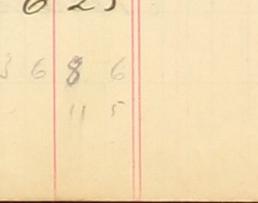 6 25
3 6 8 6
11 5